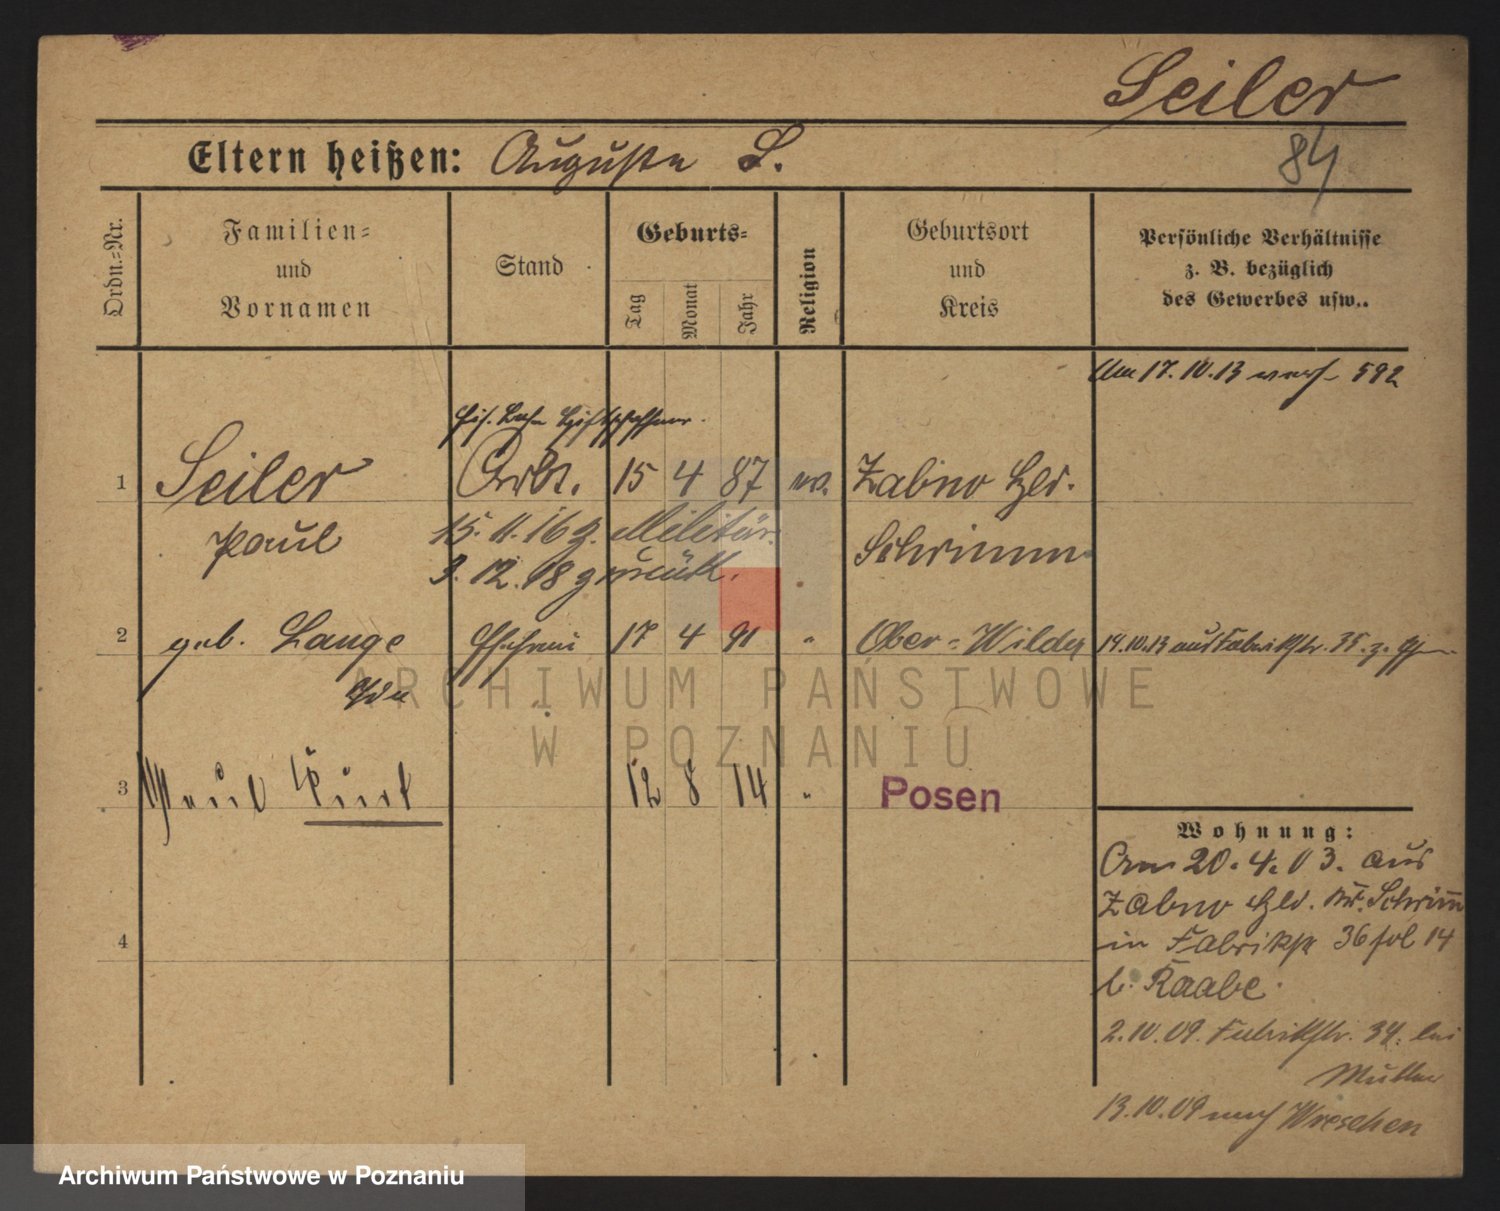 Seiler
84
Eltern heißen: Auguste S.
Ordn.-Nr.
Familien-
und
Vornamen
Stand
Geburts-
Tag
Monat
Jahr
Religion
Geburtsort
und
Kreis
Persönliche Verhältnisse
z. B. bezüglich
des Gewerbes usw..
Am 17.10.13 verh. 592
1 Seiler Arbt. 15 4 87 ev. Zabno Hld.
Paul 15.11.16 z. Militär. Schrimm
3.12.18 zurück.
2 geb. Lange Ehefrau 17 4 91 " Ober-Wilda 14.10.13 aus Fabrikstr. 35. z.
Ida
3 Paul Kurt 12 8 14 " Posen
4
Wohnung:
Am 20.4.03. aus
Zabno Hld. Kr. Schrimm
in Fabrikstr 36 fol 14
b. Raabe.
2.10.09. Fabrikstr. 34. bei
Müller
13.10.09 nach Wreschen
ARCHIWUM PAŃSTWOWE
W POZNANIU
Archiwum Państwowe w Poznaniu